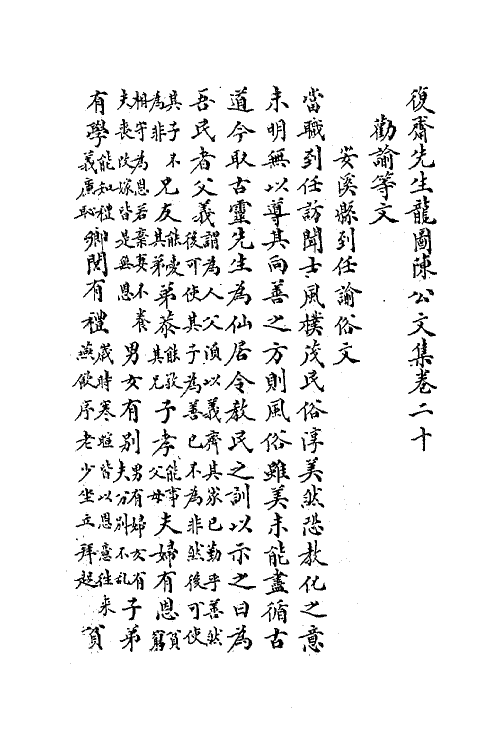 復齋先生龍圖陳公文集卷二十
勸諭等文
安溪縣到任諭俗文
當職到任訪聞士風樸茂民俗淳美然恐教化之意
未明無以導其向善之方則風俗雖美未能盡循古
道今取古靈先生為仙居令教民之訓以示之曰為
吾民者父義謂為人父須以義齊其家已勤乎善然後可使其子為善已不為非然後可使
其子不為非兄友能愛其弟弟恭能敬其兄子孝能事父母夫婦有恩貧窮
相守為恩若棄妻不養夫喪改嫁皆是無恩男女有別男有婦女有夫分別不亂子弟
有學能知禮義廉恥鄉閭有禮歲時寒暄皆以恩意往來燕飲序老少坐立拜起貧